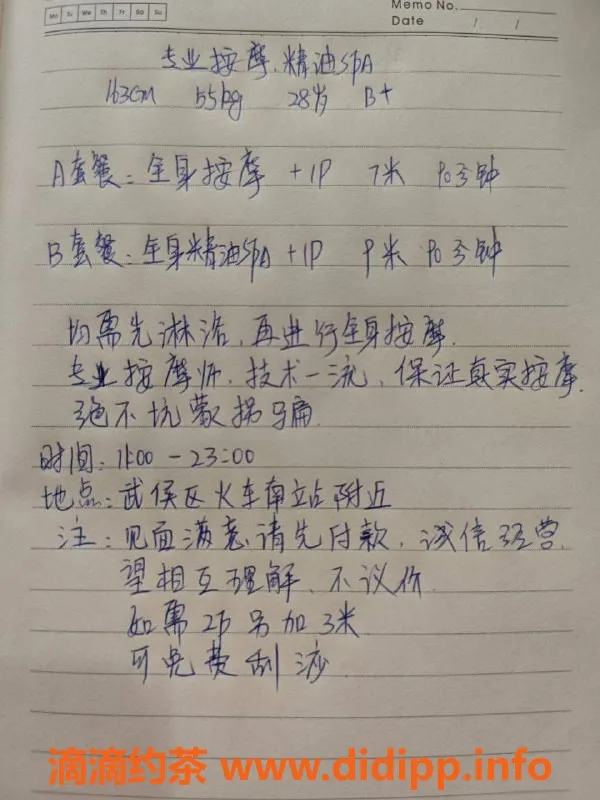 Mo Tu We Th Fr Sa Su
Memo No.
Date / /
专业按摩、精油SPA
163cm 55kg 28岁 B+
A套餐：全身按摩 +1P 7米 90分钟
B套餐：全身精油SPA +1P 9米 90分钟
均需先淋浴，再进行全身按摩.
专业按摩师，技术一流，保证真实按摩.
绝不坑蒙拐骗
时间：11:00-23:00
地点：武侯区火车南站附近
注：见面满意请先付款，诚信经营，
望相互理解、不议价.
如需2P另加3米
可免费刮痧
滴滴约茶 www.didipp.info